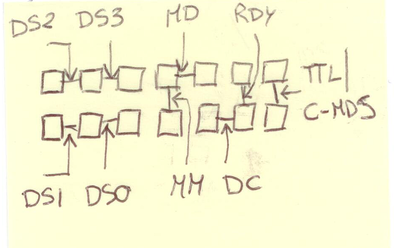 DS2 DS3 MD RDY
TTL
C-MOS
DS1 DS0 MM DC